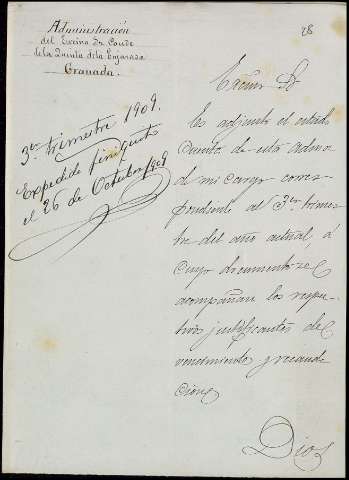 28
Administración
del Excmo Sr. Conde
de la Quinta de la Enjarada
Granada.
3er trimestre 1909.
Expedido finiquito
el 26 de Octubre/909
Excmo Sr.
Es adjunta el estado
Cuenta de esta admon
de mi cargo corres-
pondiente al 3er trimes-
tre del año actual, á
cuyo documento se
acompañan los respec-
tivos justificantes de
vencimiento y recauda-
ción
Dios